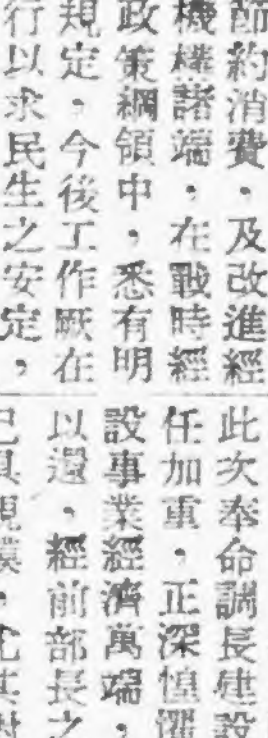 節約消費，及改進經
機構諸端，在戰時經
政策綱領中，悉有明
規定，今後工作厥在
行以求民生之安定，
此次奉命調長建設
任加重，正深惶懼
設事業經濟萬端，
以還，經前部長之
已具規模，尤其對